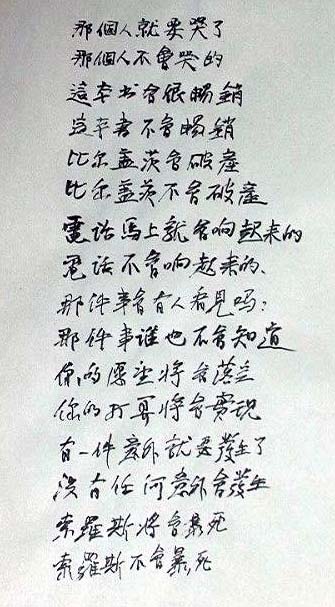 那個人就要哭了
那個人不會哭的
這本书會很暢銷
這本書不會暢銷
比尔盖茨會破產
比尔盖茨不會破產
電话馬上就會响起来的
電话不會响起来的、
那件事會有人看見吗?
那件事谁也不會知道
你的愿望将會落空
你的打算将會實現
有一件意外就要發生了
没有任何意外會發生
索羅斯将會暴死
索羅斯不會暴死